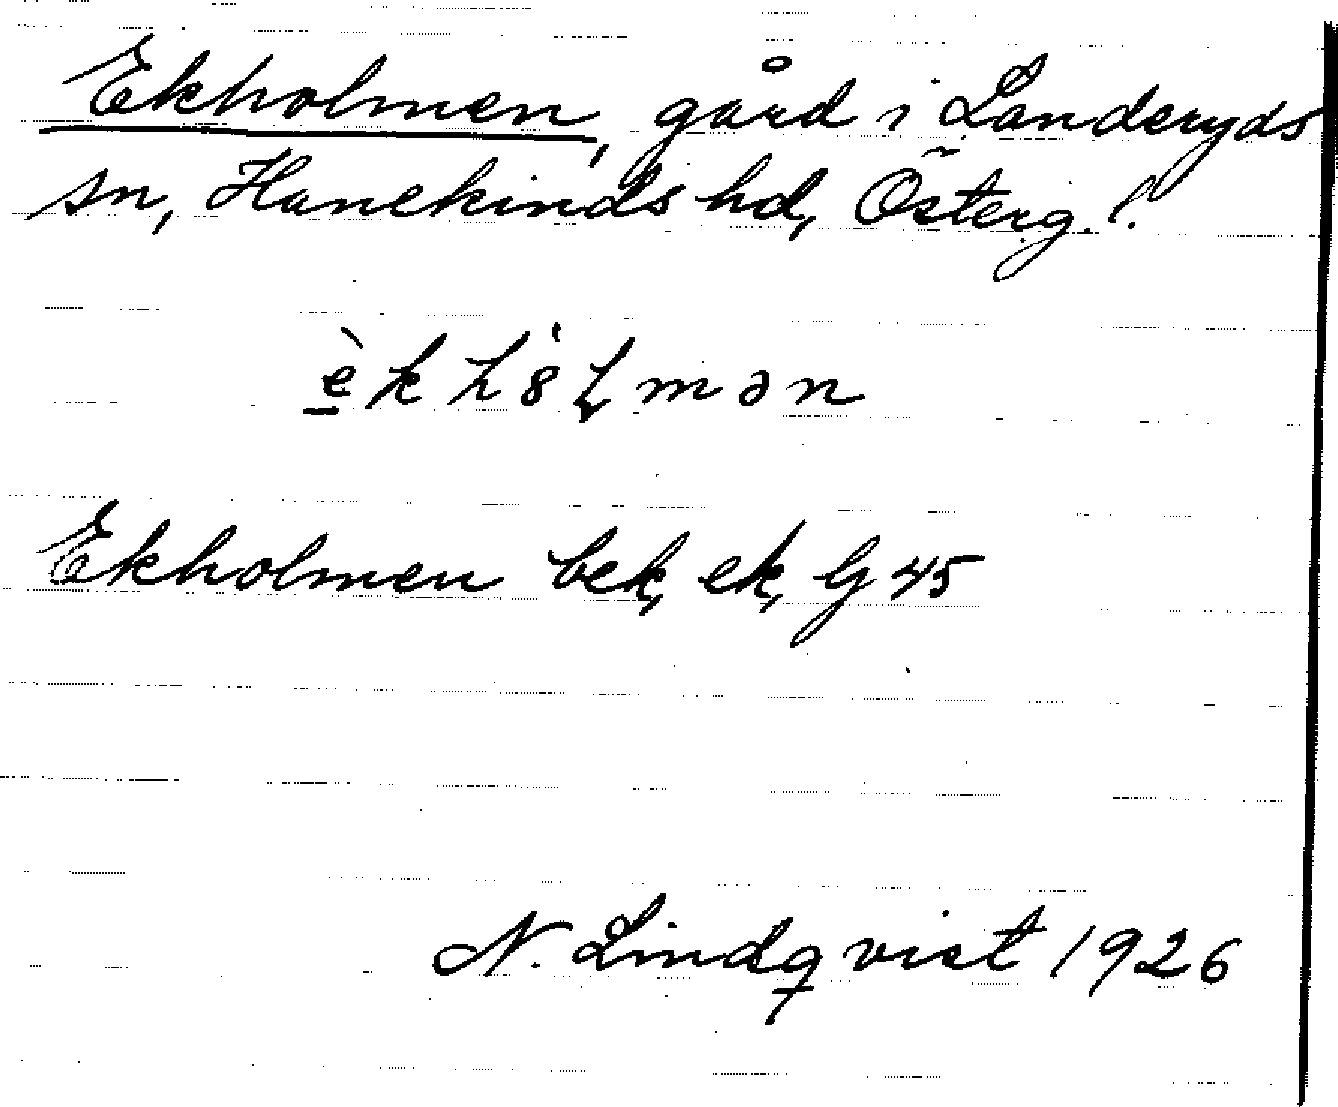 Ekholmen, gård i Landeryds
sn, Hanekinds hd, Österg. l.
Ekholmen bek, ek, G 45
N. Lindqvist 1926